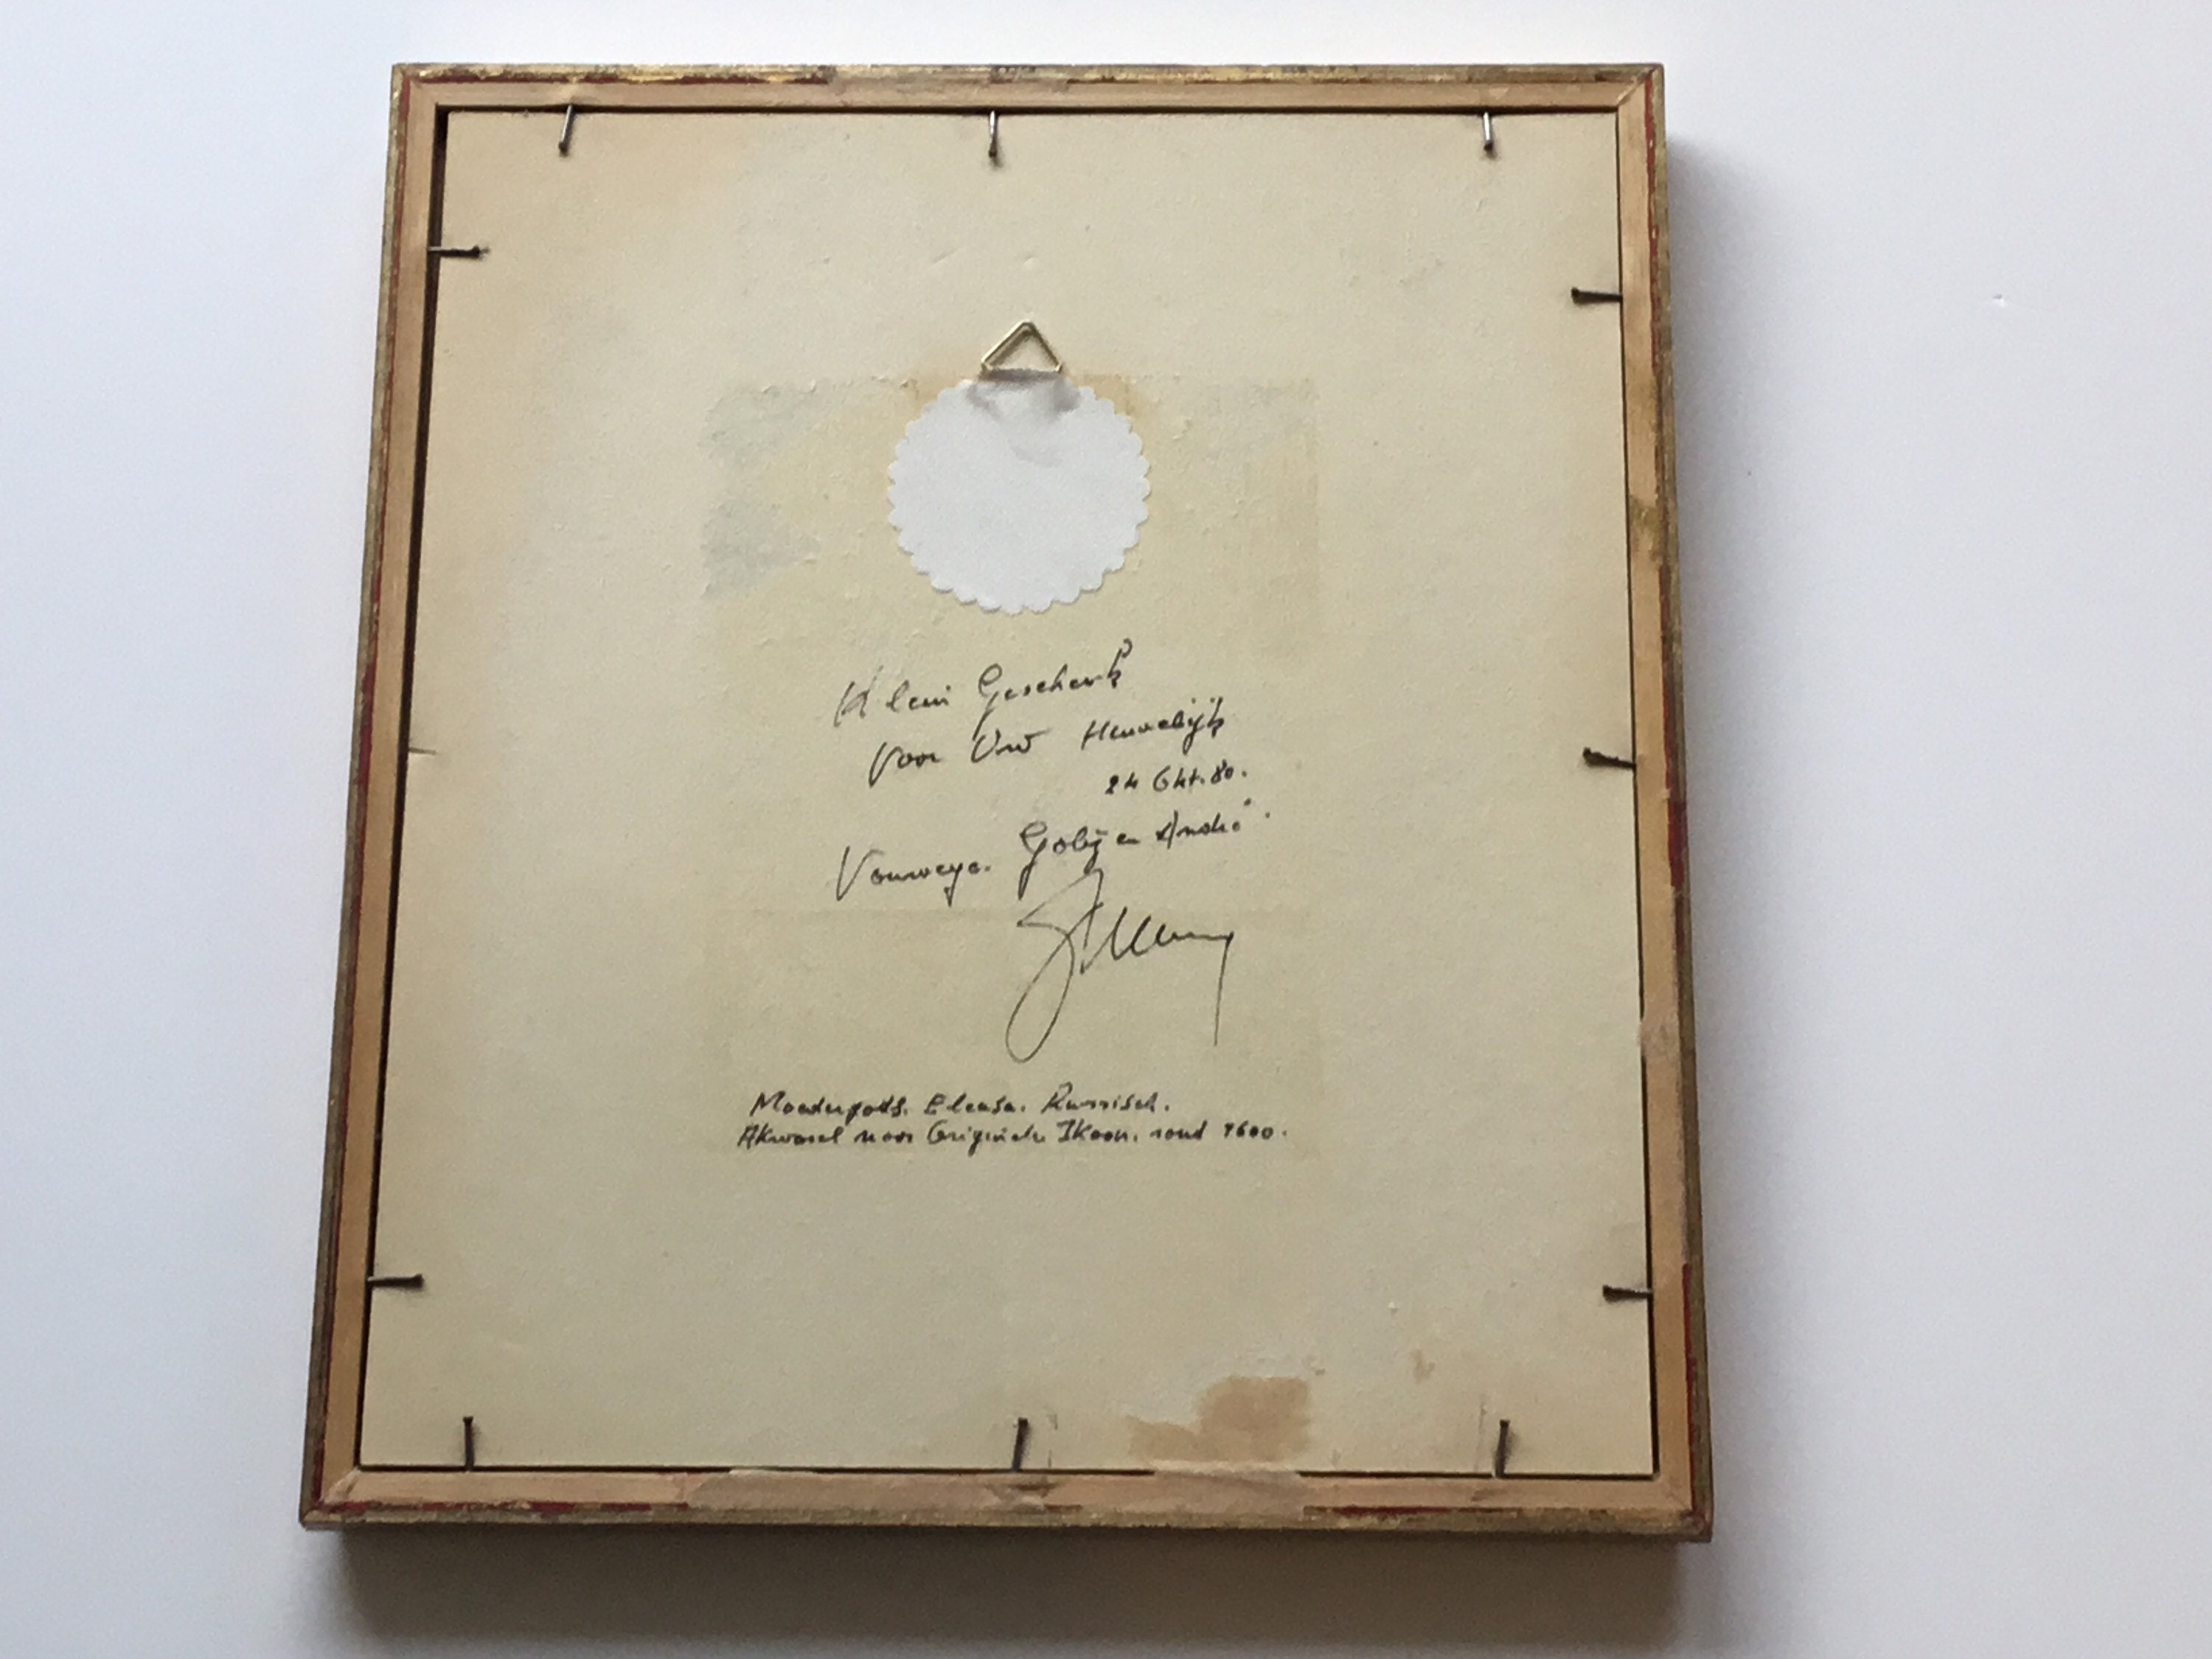 Klein Geschenk
Voor Uw Huwelijk
24 Okt. 80.
Vanwege. en André.
Moedergods. Eleusa. Russisch.
Akwarel naar Originele Ikoon. rond 1600.